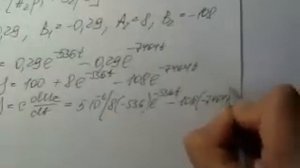 ,29, B₁ = -0,29, A₂ = 8, B₂ = -108
= 0,29e^-536t - 0,29e^-7464t
= 100 + 8e^-536t - 108e^-7464t
= c dUc/dt = 5·10⁻⁶(8(-536)e^-536t - 108(-7464)